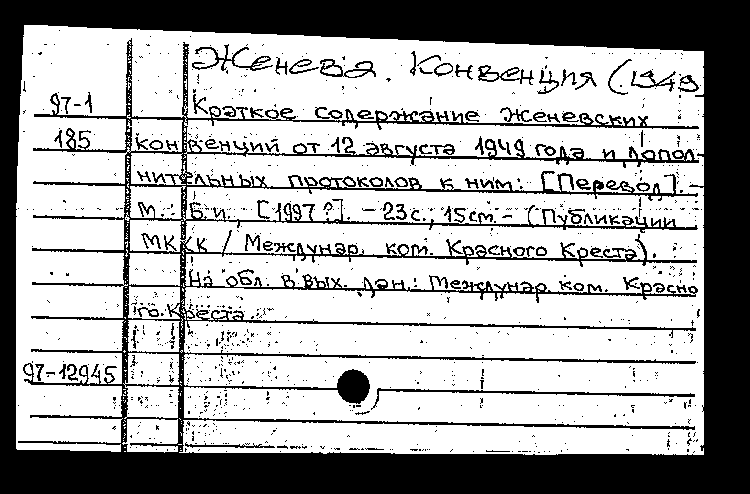 Женевия. Конвенция (1949)
97-1 Краткое содержание Женевских
185 конвенций от 12 августа 1949 года и допол-
нительных протоколов к ним: [Перевод]. -
М.: Б.и., [1997?]. - 23с.; 15см - (Публикации
МККК / Междунар. ком. Красного Креста).
На обл. в вых. дан.: Междунар. ком. Красно
го Креста.
97-12945